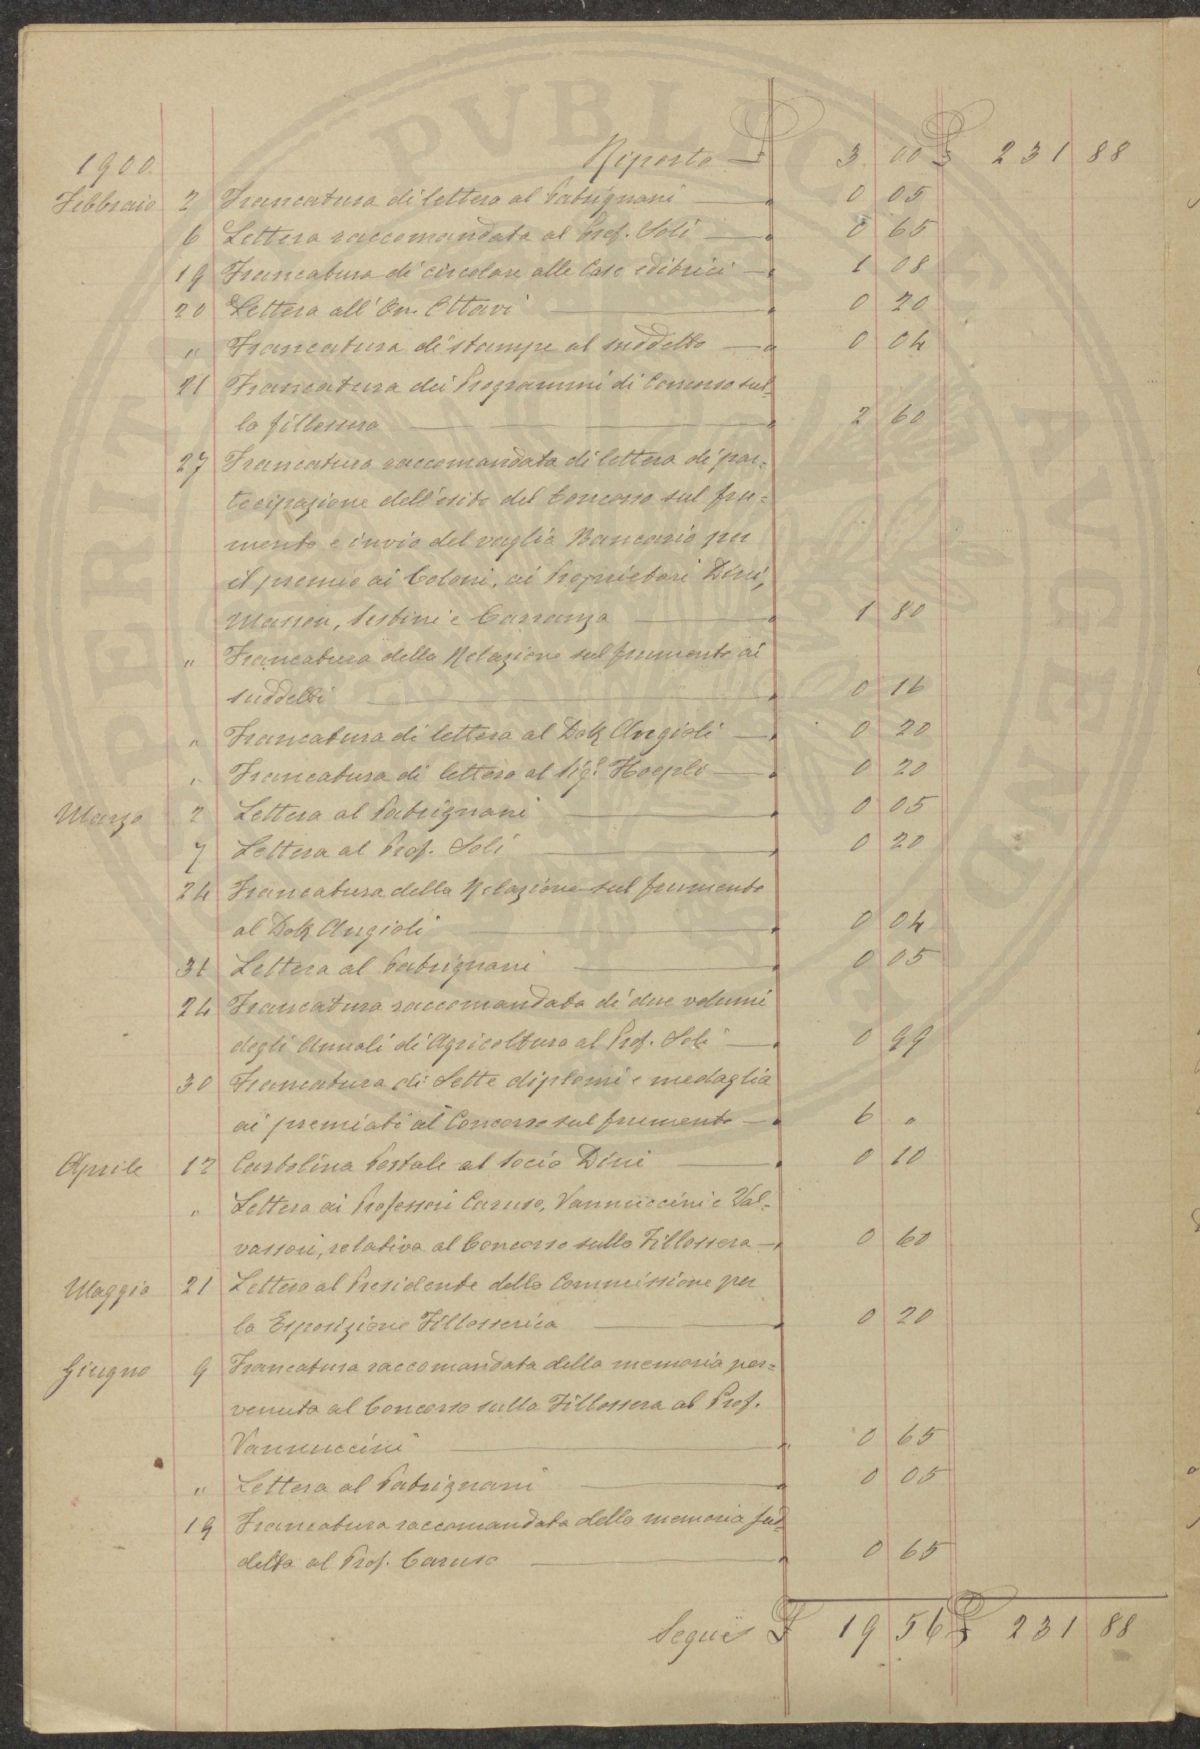 1900. Riporto £ 3 00 £ 231 88
Febbraio 2 Francatura di lettera al Patrignani — " 0 05
6 Lettera raccomandata al Prof. Soli — " 0 65
19 Francatura di circolare alle Case editrici — " 1 08
20 Lettera all'On. Ottavi — " 0 20
" Francatura di stampe al suddetto — " 0 04
21 Francatura dei Programmi di Concorso sul-
la fillossera — " 2 60
27 Francatura raccomandata di lettera di par=
tecipazione dell'esito del Concorso sul fru=
mento e invio del vaglia Bancario per
il premio ai Coloni, ai Proprietari Dini,
Masson, Sestini e Carranza — " 1 80
" Francatura della Relazione sul frumento ai
suddetti — " 0 16
" Francatura di lettera al Dott Angioli — " 0 20
" Francatura di lettera al Sig.r Hoepli — " 0 20
Marzo 2 Lettera al Patrignani — " 0 05
7 Lettera al Prof. Soli — " 0 20
24 Francatura della Relazione sul frumento
al Dott Angioli — " 0 04
31 Lettera al Patrignani — " 0 05
24 Francatura raccomandata di due volumi
degli Annali di Agricoltura al Prof. Soli — " 0 99
30 Francatura di Sette diplomi e medaglia
ai premiati al Concorso sul frumento — " 6 "
Aprile 12 Cartolina Postale al socio Dini — " 0 10
" Lettera ai Professori Caruso, Vannuccini e Val=
vassori, relativa al Concorso sulla Fillossera — " 0 60
Maggio 21 Lettera al Presidente della Commissione per
la Esposizione Fillosserica — " 0 20
Giugno 9 Francatura raccomandata della memoria per=
venuta al Concorso sulla Fillossera al Prof.
Vannuccini — " 0 65
" Lettera al Patrignani — " 0 05
19 Francatura raccomandata della memoria sud-
detta al Prof. Caruso — " 0 65
Segue £ 19 56 £ 231 88